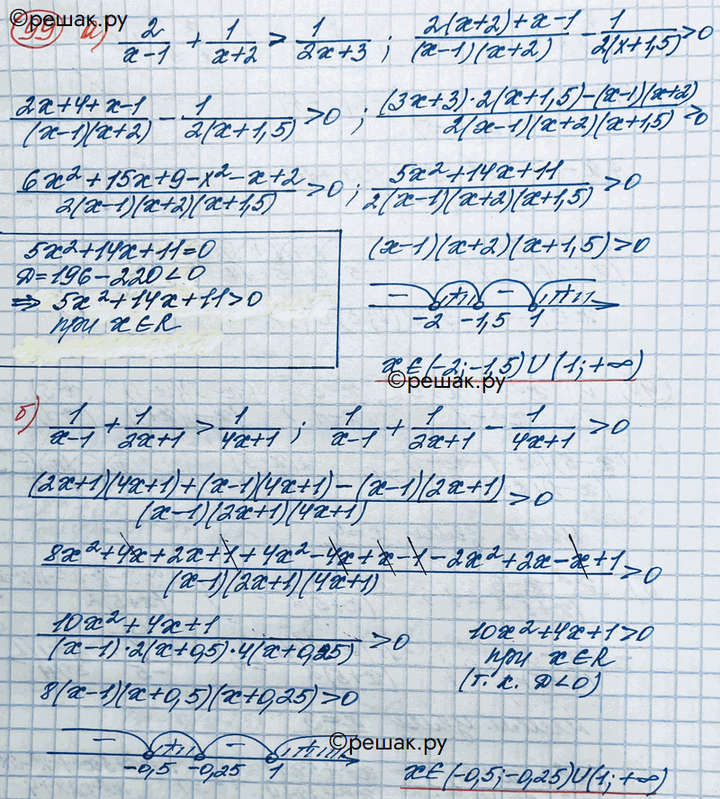 ©решак.ру
99 а) 2/(x-1) + 1/(x+2) > 1/(2x+3) ; (2(x+2)+x-1)/((x-1)(x+2)) - 1/(2(x+1,5)) > 0
(2x+4+x-1)/((x-1)(x+2)) - 1/(2(x+1,5)) > 0 ; ((3x+3)·2(x+1,5)-(x-1)(x+2))/(2(x-1)(x+2)(x+1,5)) > 0
(6x²+15x+9-x²-x+2)/(2(x-1)(x+2)(x+1,5)) > 0 ; (5x²+14x+11)/(2(x-1)(x+2)(x+1,5)) > 0
5x²+14x+11=0
Д=196-220<0
⇒ 5x²+14x+11>0
при x∈R
(x-1)(x+2)(x+1,5)>0
- + - +
-2 -1,5 1
x∈(-2;-1,5)∪(1;+∞)
©решак.ру
б) 1/(x-1) + 1/(2x+1) > 1/(4x+1) ; 1/(x-1) + 1/(2x+1) - 1/(4x+1) > 0
((2x+1)(4x+1)+(x-1)(4x+1)-(x-1)(2x+1))/((x-1)(2x+1)(4x+1)) > 0
(8x²+4x+2x+1+4x²-4x+x-1-2x²+2x-x+1)/((x-1)(2x+1)(4x+1)) > 0
(10x²+4x+1)/((x-1)·2(x+0,5)·4(x+0,25)) > 0
10x²+4x+1>0
при x∈R
(т.к. Д<0)
8(x-1)(x+0,5)(x+0,25)>0
- + - +
©решак.ру
-0,5 -0,25 1
x∈(-0,5;-0,25)∪(1;+∞)